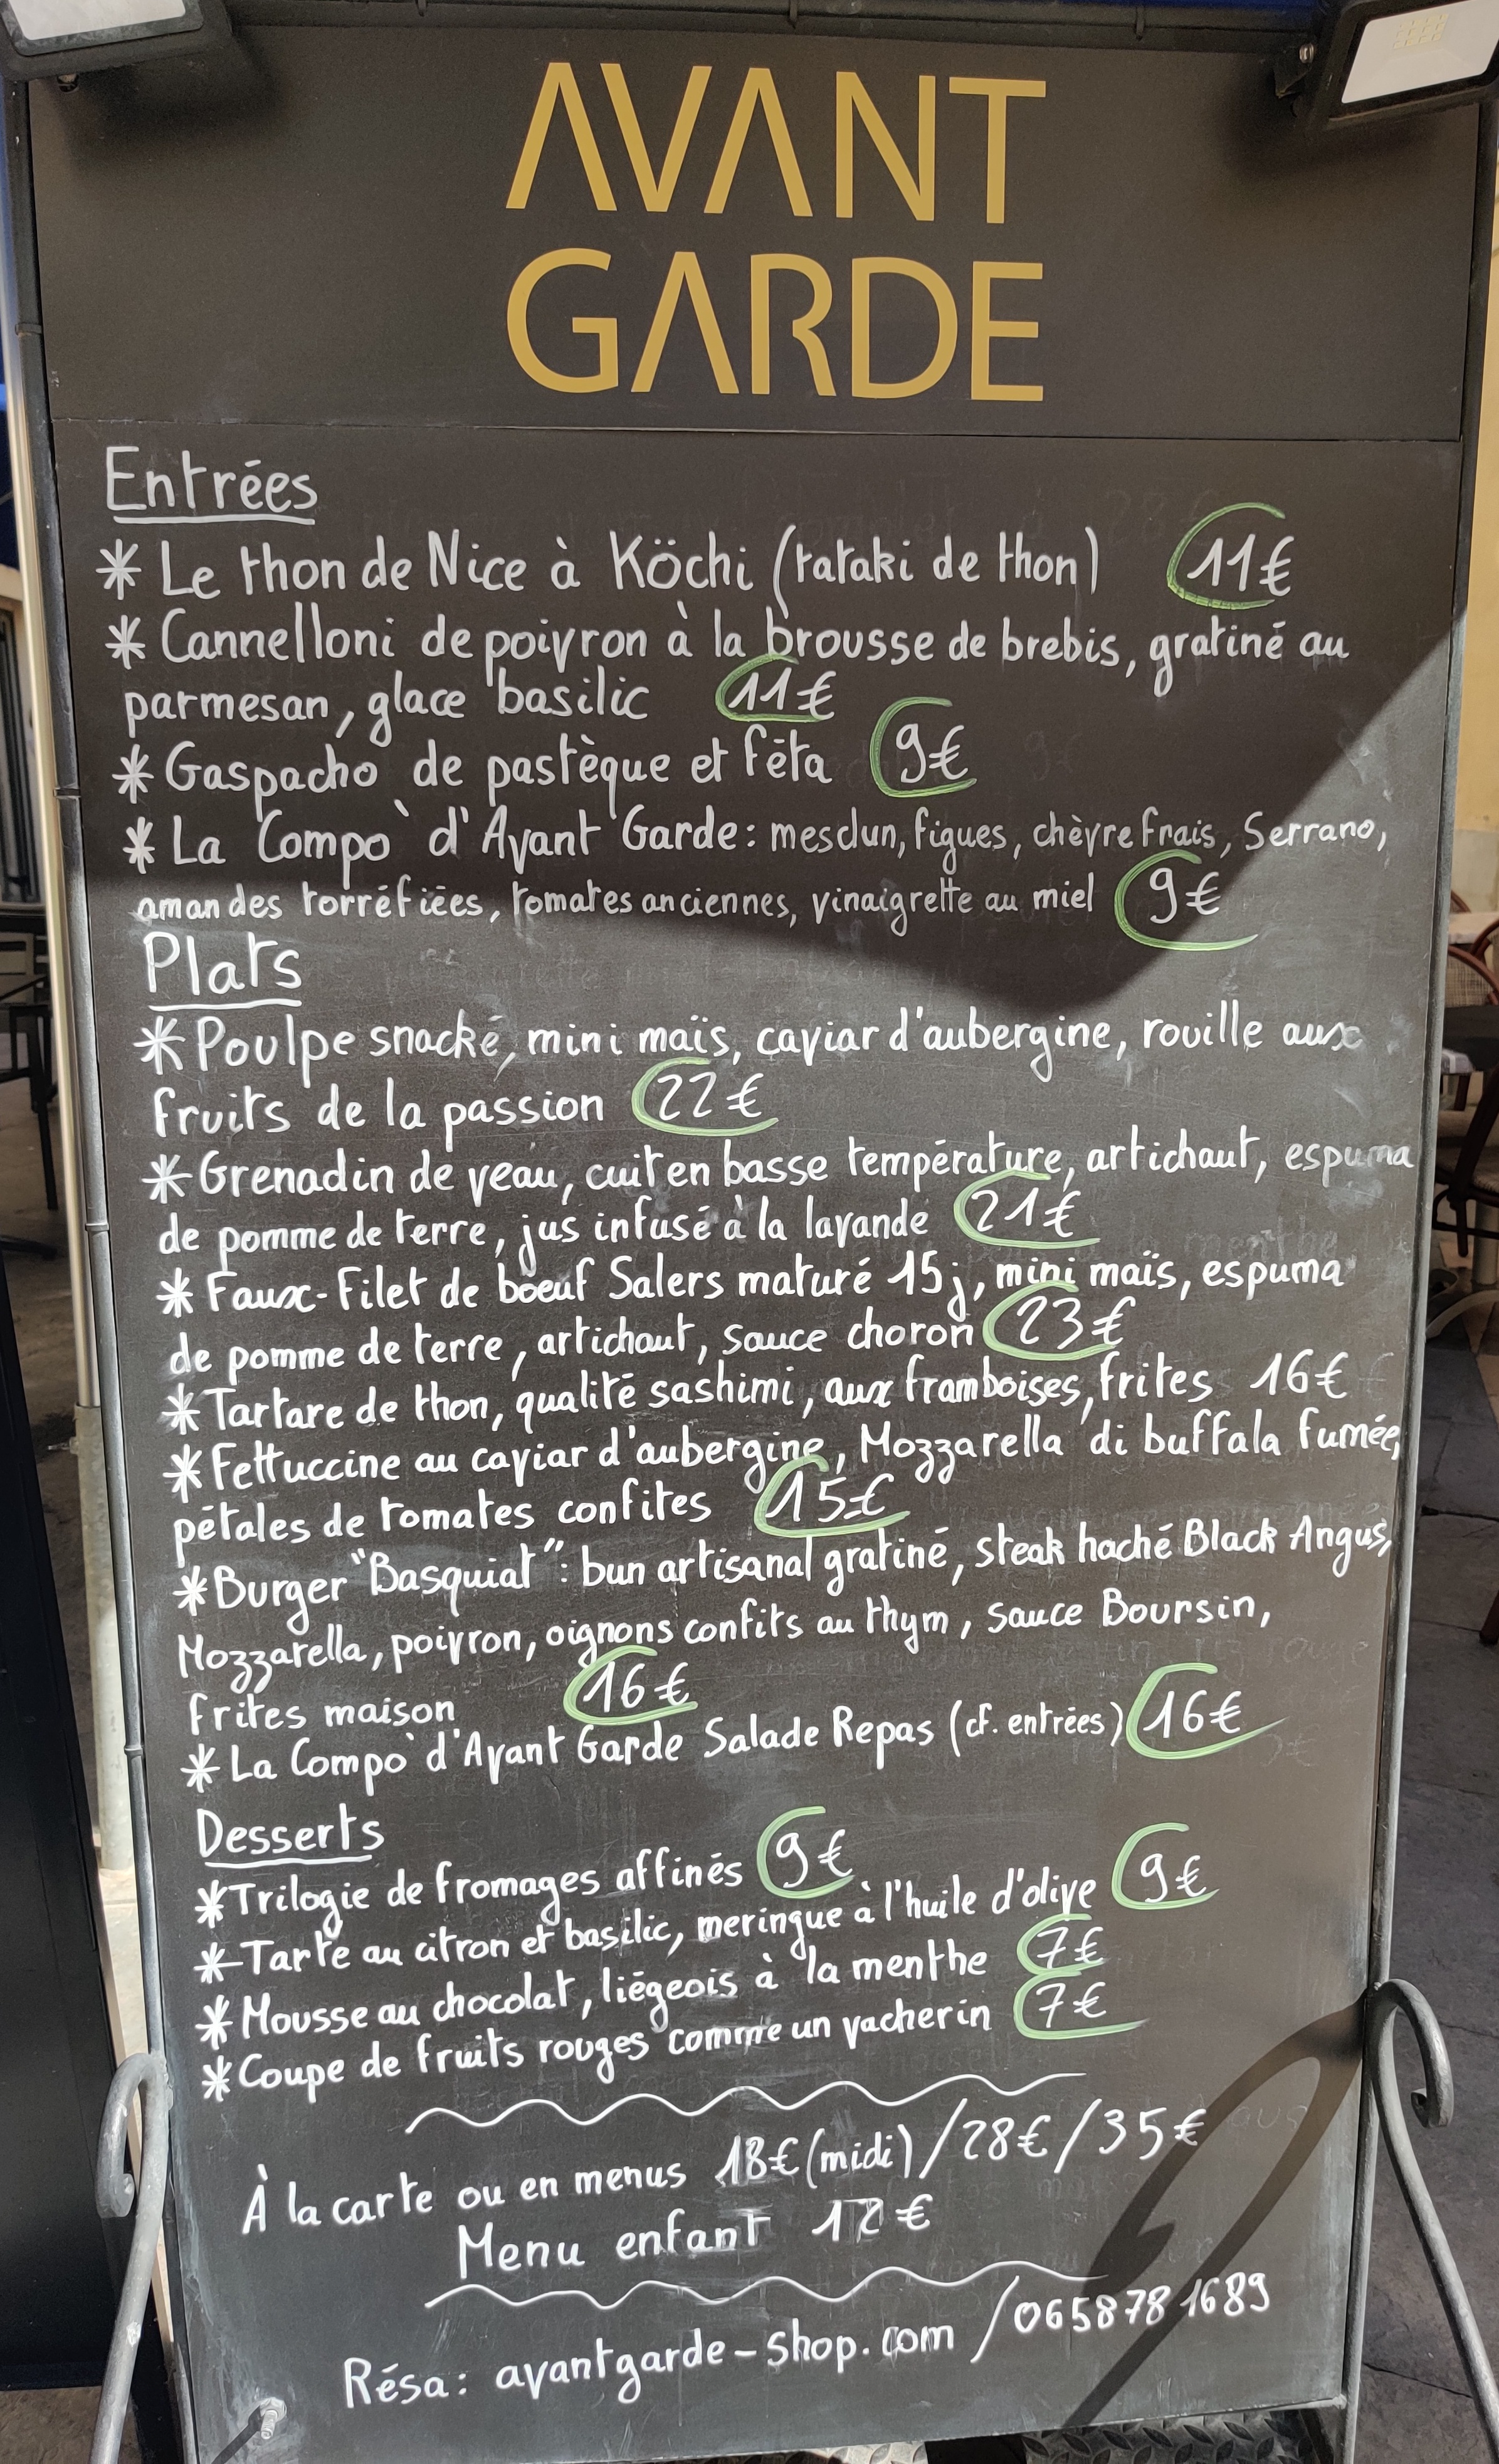 AVANT
GARDE
Entrées
* Le thon de Nice à Köchi (tataki de thon) 11€
* Cannelloni de poivron à la brousse de brebis, gratiné au
parmesan, glace basilic 11€
* Gaspacho de pastèque et fêta 9€
* La Compo d'Avant Garde : mesclun, figues, chèvre frais, Serrano,
amandes torréfiées, tomates anciennes, vinaigrette au miel 9€
Plats
* Poulpe snacké, mini maïs, caviar d'aubergine, rouille aux
fruits de la passion 22€
* Grenadin de veau, cuit en basse température, artichaut, espuma
de pomme de terre, jus infusé à la lavande 21€
* Faux-Filet de boeuf Salers maturé 15j, mini maïs, espuma
de pomme de terre, artichaut, sauce choron 23€
* Tartare de thon, qualité sashimi, aux framboises, frites 16€
* Fettuccine au caviar d'aubergine, Mozzarella di buffala fumée,
pétales de tomates confites 15€
* Burger "Basquiat" : bun artisanal gratiné, steak haché Black Angus,
Mozzarella, poivron, oignons confits au thym, sauce Boursin,
frites maison 16€
* La Compo d'Avant Garde Salade Repas (cf. entrées) 16€
Desserts
* Trilogie de fromages affinés 9€
* Tarte au citron et basilic, meringue à l'huile d'olive 9€
* Mousse au chocolat, liégeois à la menthe 7€
* Coupe de fruits rouges comme un vacherin 7€
À la carte ou en menus 18€ (midi) / 28€ / 35€
Menu enfant 12€
Résa : avantgarde-shop.com / 0658781689